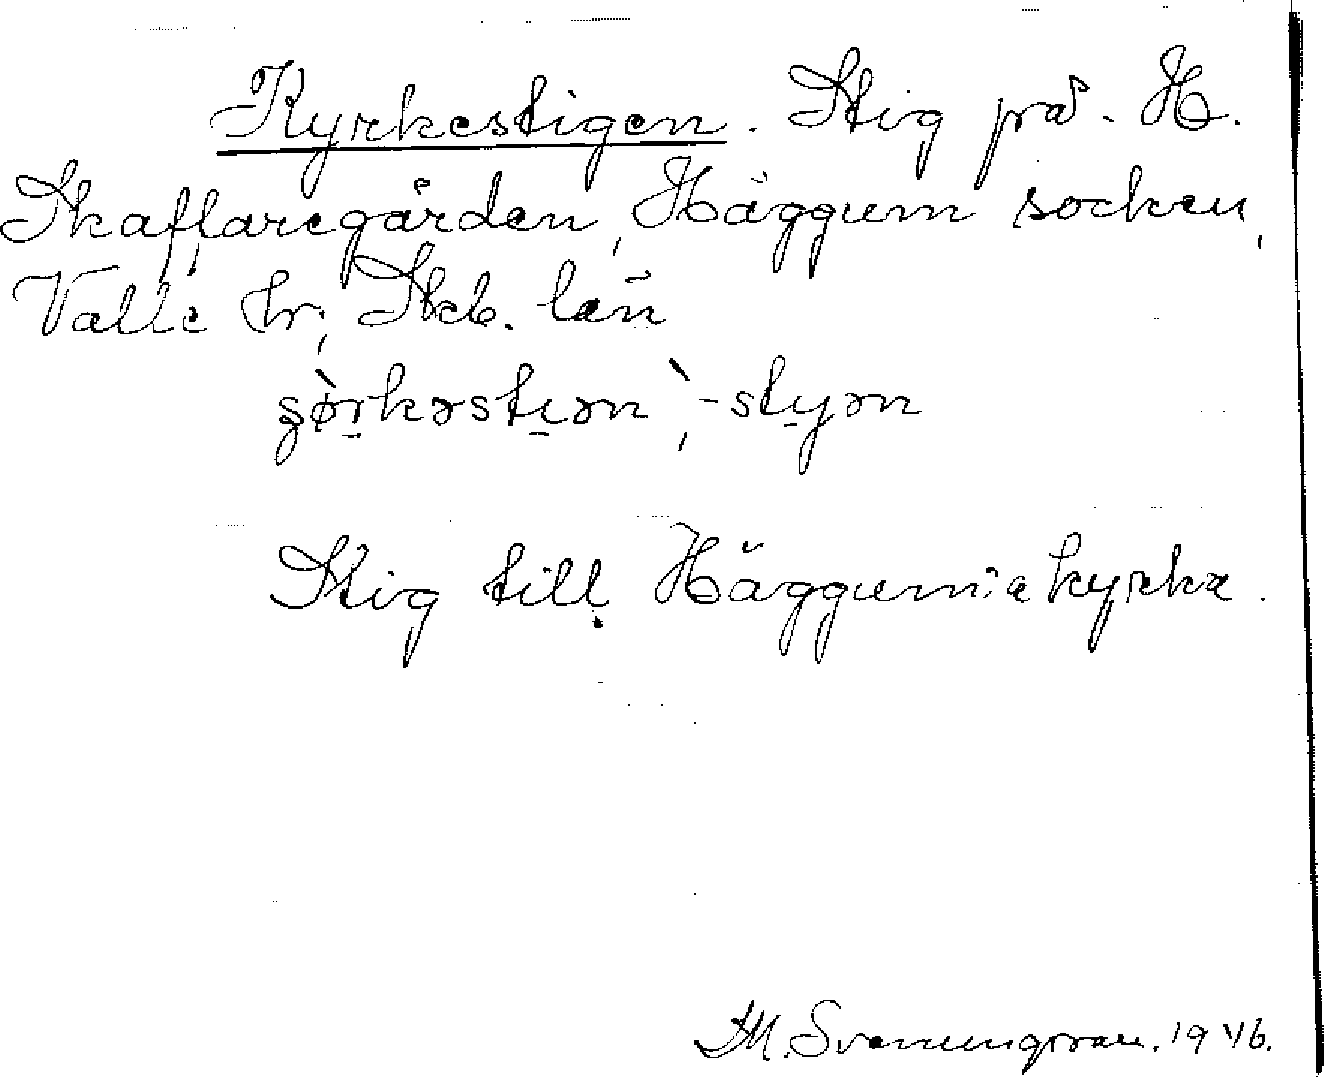 Kyrkestigen. Stig på. H.
Skaffaregården, Häggum socken,
Valle hr, Skb. län
-styən
Stig till Häggums kyrka.
M. Svanungsson. 1946.